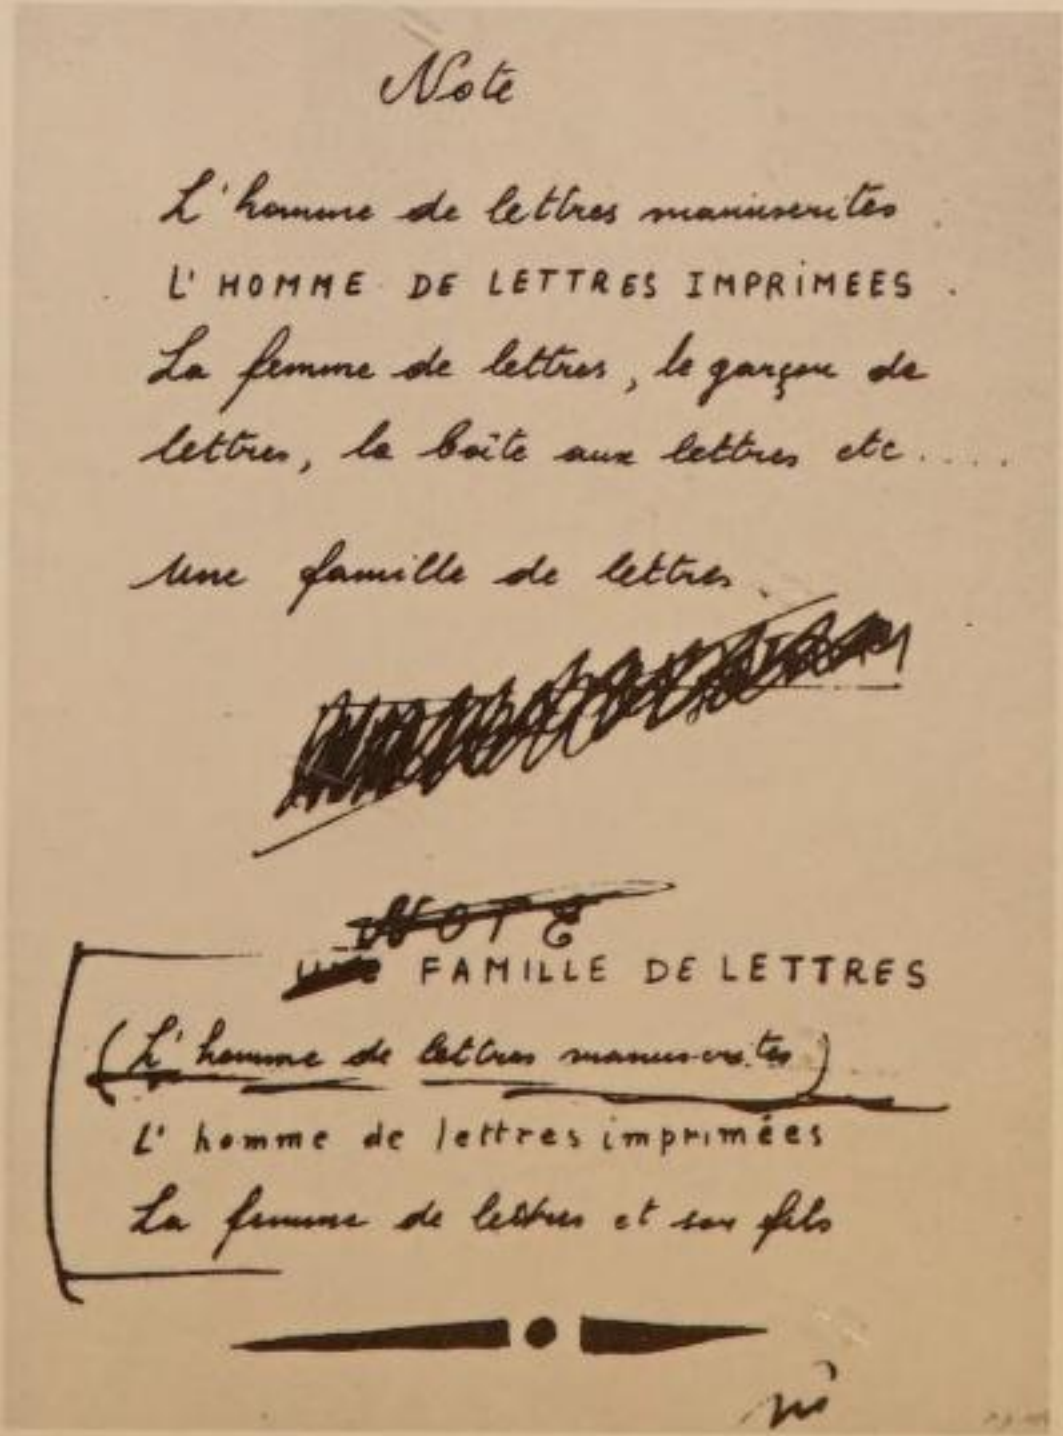 Note
L'homme de lettres manuscrites.
L'HOMME DE LETTRES IMPRIMEES.
La femme de lettres, le garçon de
lettres, la boîte aux lettres etc.....
Une famille de lettres.
NOTE
UNE FAMILLE DE LETTRES
(L'homme de lettres manuscrites)
L'homme de lettres imprimées
La femme de lettres et son fils